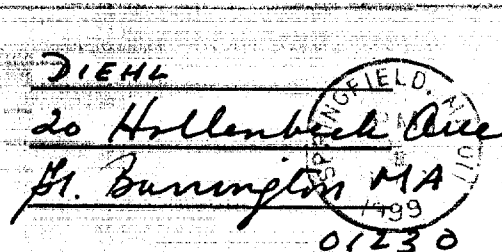 DIEHL
20 Hollenbeck Ave
Gt. Barrington MA
01230
SPRINGFIELD, MA 011
1999